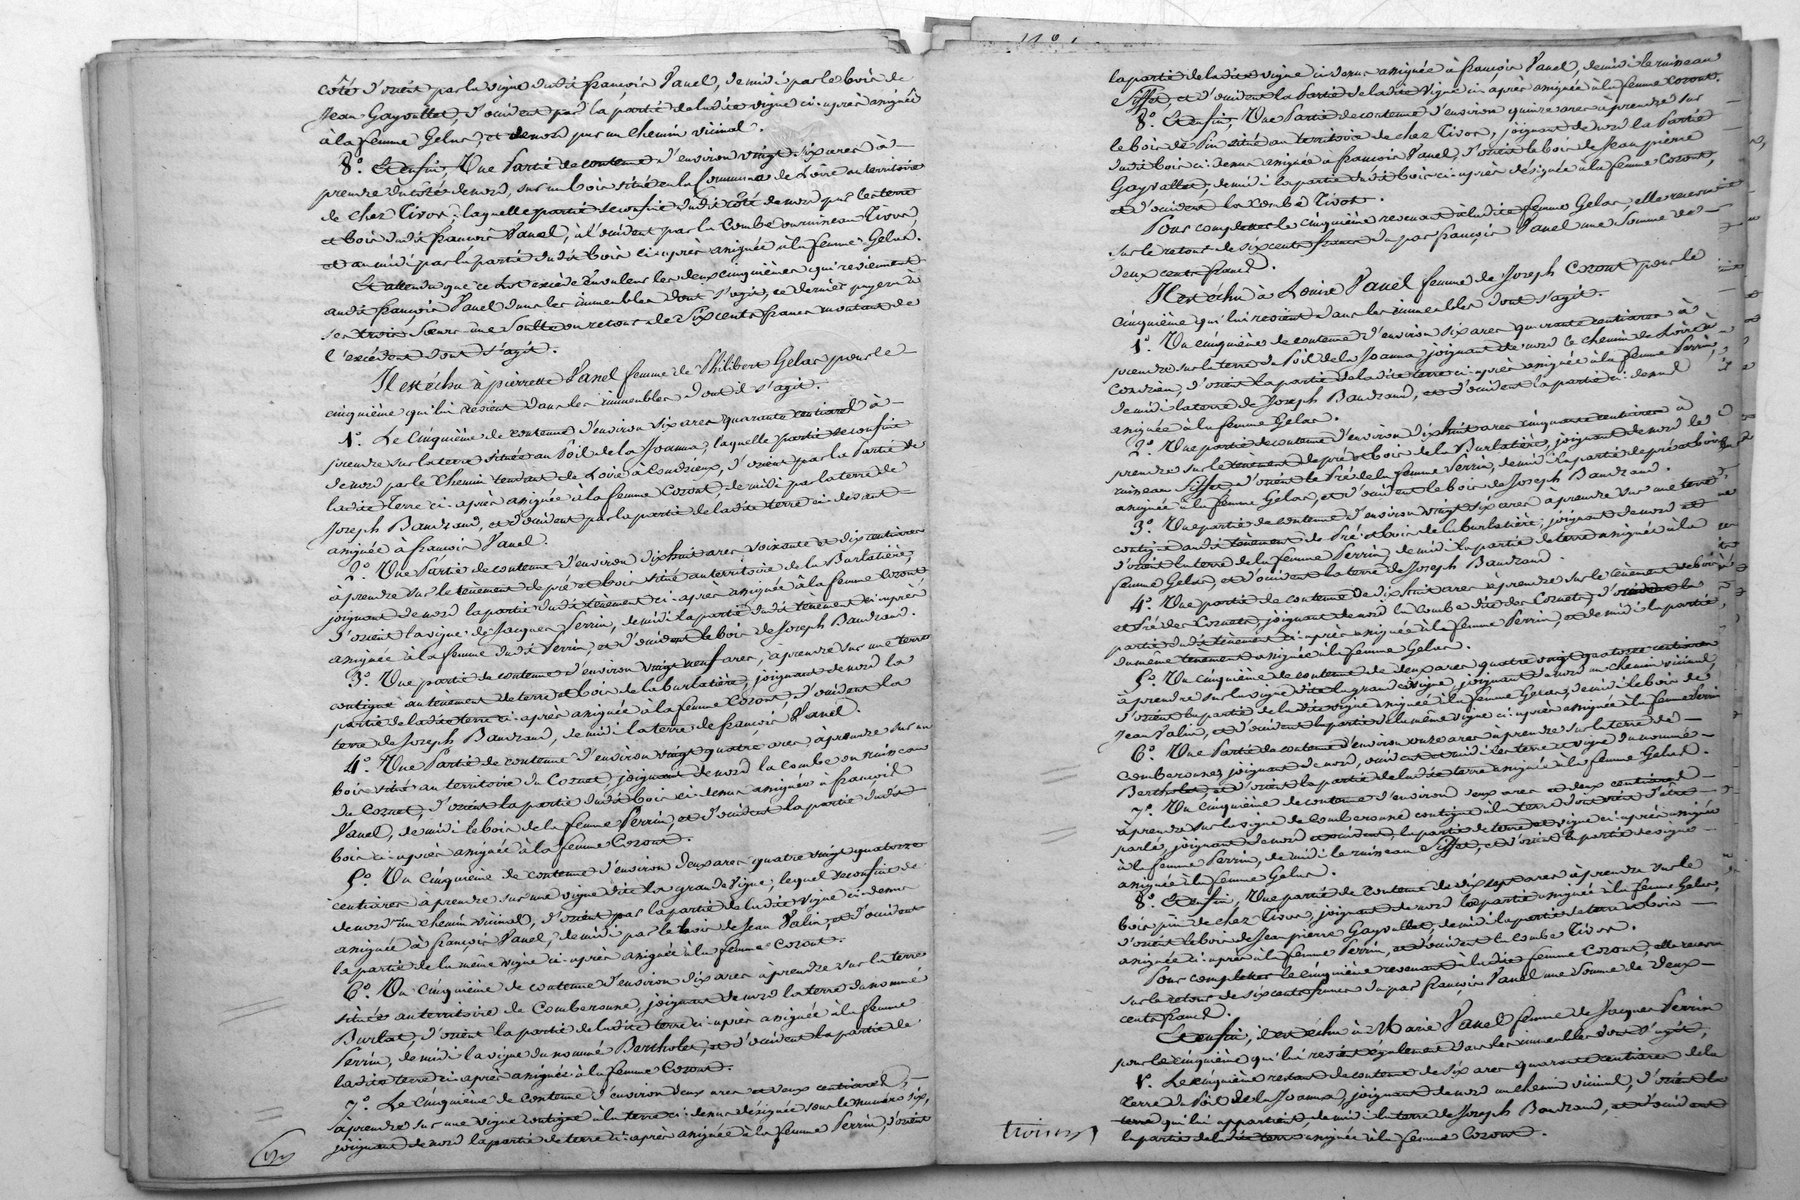 côté d'orient par la vigne dudit françois Vanel, de midi par le bois de
Jean Gayvallet, d'occident par la partie de ladite vigne ci-après assignée
à la femme Gelas, et de nord par un chemin vicinal.
8.° Et enfin, Une Partie de contenue d'environ vingt six ares à
prendre du côté de nord, sur un bois situé en la Commune de Loire au territoire
de chez Tivos; laquelle partie se confine dudit côté de nord par les terre
et bois dudit françois Vanel, à l'occident par la Combe ou ruineau Tivos,
et au midi par la partie dudit bois ci-après assignée à la femme Gelas.
Et attendu que ce Lot excède en valeur les deux cinquièmes qui reviennent
audit françois Vanel dans les immeubles dont s'agit, ce dernier payera à
ses trois Sœurs une Soulte ou retour de Six cents francs montant de
l'excédent dont s'agit.
Il est échu à pierrette Vanel femme de Philibert Gelas pour le
cinquième qui lui revient dans les immeubles dont il s'agit.
1.° Le Cinquième de contenue d'environ six ares quarante centiares à
prendre sur la terre située au Poil de la Joanna, laquelle partie se confine
de nord par le chemin tendant de Loire à Condrieux, d'orient par la Partie de
ladite Terre ci-après assignée à la femme Coront, de midi par la terre de
Joseph Bandrand, et d'occident par la partie de ladite terre ci-devant
assignée à françois Vanel.
2.° Une Partie de contenue d'environ dixhuit ares soixante et dix centiares
à prendre sur le tènement de pré et bois situé au territoire de la Burlatière;
joignant de nord la partie dudit tènement ci-après assignée à la femme Coront
d'orient la vigne de Jacques Perrin, de midi la partie dudit tènement ci-après
assignée à la femme dudit Perrin, et d'occident le bois de Joseph Bandrand.
3.° Une partie de contenue d'environ vingt neuf ares, à prendre sur une terre
contigue au tènement de terre et bois de la burlatière, joignant de nord la
partie de ladite terre ci-après assignée à la femme Coront, d'occident la
terre de Joseph Bandrand, de midi la terre de françois Vanel.
4.° Une Partie de contenue d'environ vingt quatre ares, à prendre sur un
bois situé au territoire du Cornet, joignant de nord la combe ou ruineau
du Cornet, d'orient la partie dudit bois ci-devant assignée à françois
Vanel, de midi le bois de la femme Perrin, et d'occident la partie dudit
bois ci-après assignée à la femme Coront.
5.° Un Cinquième de contenue d'environ deux ares quatre vingt quatorze
centiares à prendre sur une vigne dite la grande Vigne; lequel se confine de
de nord un chemin vicinal, d'orient par la partie de ladite vigne ci-devant
assignée à françois Vanel, de midi par le bois de Jean Valin, et d'occident
la partie de la même vigne ci-après assignée à la femme Coront.
6.° Un Cinquième de contenue d'environ dix ares à prendre sur la terre
située au territoire de Comberonne, joignant de nord la terre du nommé
Burlat, d'orient la partie de ladite terre ci-après assignée à la femme
Perrin, de midi la vigne du nommé Bertholet, et d'occident la partie de
ladite terre ci-après assignée à la femme Coront.
7.° Le Cinquième de contenue d'environ deux ares et deux centiares,
à prendre sur une vigne contigue à la terre ci-devant désignée sous le numéro six,
joignant de nord la partie de terre ci-après assignée à la femme Perrin, d'orient
la partie de ladite vigne ci-devant assignée à françois Vanel, de midi le ruineau
Siffet, et d'occident la Partie de ladite Vigne ci-après assignée à la femme Coront.
8.° Et enfin, Une Partie de contenue d'environ quinze ares à prendre sur
le bois de Pin situé au territoire de chez Tivos, joignant de nord la Partie
dudit bois ci-devant assignée à françois Vanel, d'orient le bois de Jean pierre
Gayvallet, de midi la partie dudit bois ci-après désignée à la femme Coront,
et d'occident la combe Tivos.
Pour completter le cinquième revenant à ladite femme Gelas, elle recevra
sur le retour de six cents francs du par françois Vanel une Somme de
deux cents francs.
Il est échu à Louise Vanel femme de Joseph Coront pour le
cinquième qui lui revient dans les immeubles dont s'agit.
1.° Un cinquième de contenue d'environ six ares quarante centiares à
prendre sur la terre du Poil de la Joanna joignant de nord le chemin de Loire à
Condrieu, d'orient la partie de ladite terre ci-après assignée à la femme Perrin,
de midi la terre de Joseph Bandrand, et d'occident la partie ci-devant
assignée à la femme Gelas.
2.° Une partie de contenue d'environ dixhuit ares cinquante centiares à
prendre sur le tènement de pré et bois de la Burlatière, joignant de nord le
ruineau Siffet, d'orient le Pré de la femme Perrin, de midi la partie de pré et bois
assignée à la femme Gelas, et d'occident le bois de Joseph Bandrand.
3.° Une partie de contenue d'environ vingt six ares à prendre sur une terre
contigue audit tènement de Pré et bois de la burlatière; joignant de nord et
d'orient la terre de la femme Perrin, de midi la partie de terre assignée à la
femme Gelas, et d'occident la terre de Joseph Bandrand.
4.° Une partie de contenue de dixhuit ares à prendre sur le tènement de bois
et Pré des Cornets, joignant de nord la Combe dite des Cornets, d'occident la
partie dudit tènement ci-après assignée à la femme Perrin, et de midi la partie
du même tènement assignée à la femme Gelas.
5.° Un cinquième de contenue de deux ares quatre vingt quatorze centiares
à prendre sur la vigne dite la grande vigne, joignant de nord un chemin vicinal,
d'orient la partie de ladite vigne assignée à la femme Gelas, de midi le bois de
Jean Valin, et d'occident la partie de la même vigne ci-après assignée à la femme Perrin
6.° Une Partie de contenue d'environ onze ares à prendre sur la terre de
Comberonne, joignant de nord, occident et midi les terre et vigne du nommé
Bertholet, et d'orient la partie de ladite terre assignée à la femme Gelas.
7.° Un cinquième de contenue d'environ deux ares et deux centiares
à prendre sur la vigne de Comberonne contigue à la terre dont vient d'être
parlé, joignant de nord et occident, la partie de terre et vigne ci-après assignée
à la femme Perrin, de midi le ruineau Siffet, et d'orient la partie de vigne
assignée à la femme Gelas.
8.° Et enfin, Une partie de contenue de dix sept ares à prendre sur le
bois pin de chez Tivos, joignant de nord la partie assignée à la femme Gelas,
d'orient le bois de Jean pierre Gayvallet, de midi la partie de terre et bois
assignée ci-après à la femme Perrin, et d'occident la combe Tivos.
Pour completter le cinquième revenant à ladite femme Coront, elle recevra
sur le retour de six cents francs du par françois Vanel une Somme de deux
cents francs.
Et enfin, il est échu à Marie Vanel femme de Jacques Perrin
pour le cinquième qui lui revient également dans les immeubles dont s'agit,
1.° Le cinquième restant de contenue de six ares quarante centiares de la
terre du Poil de la Joanna, joignant de nord un chemin vicinal, d'orient la
terre qui lui appartient, de midi la terre de Joseph Bandrand, et d'occident
la partie de ladite terre assignée à la femme Coront.